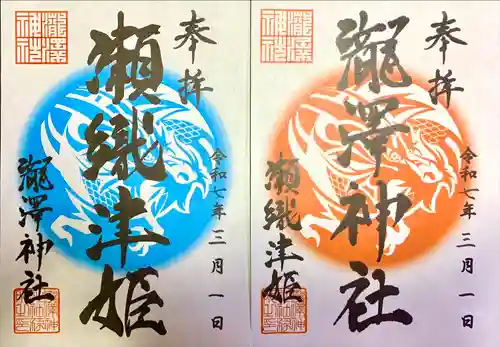 奉拝
瀬織津姫
瀧澤神社
令和七年三月一日
瀧澤神社
奉拝
瀧澤神社
瀬織津姫
令和七年三月一日
瀧澤神社